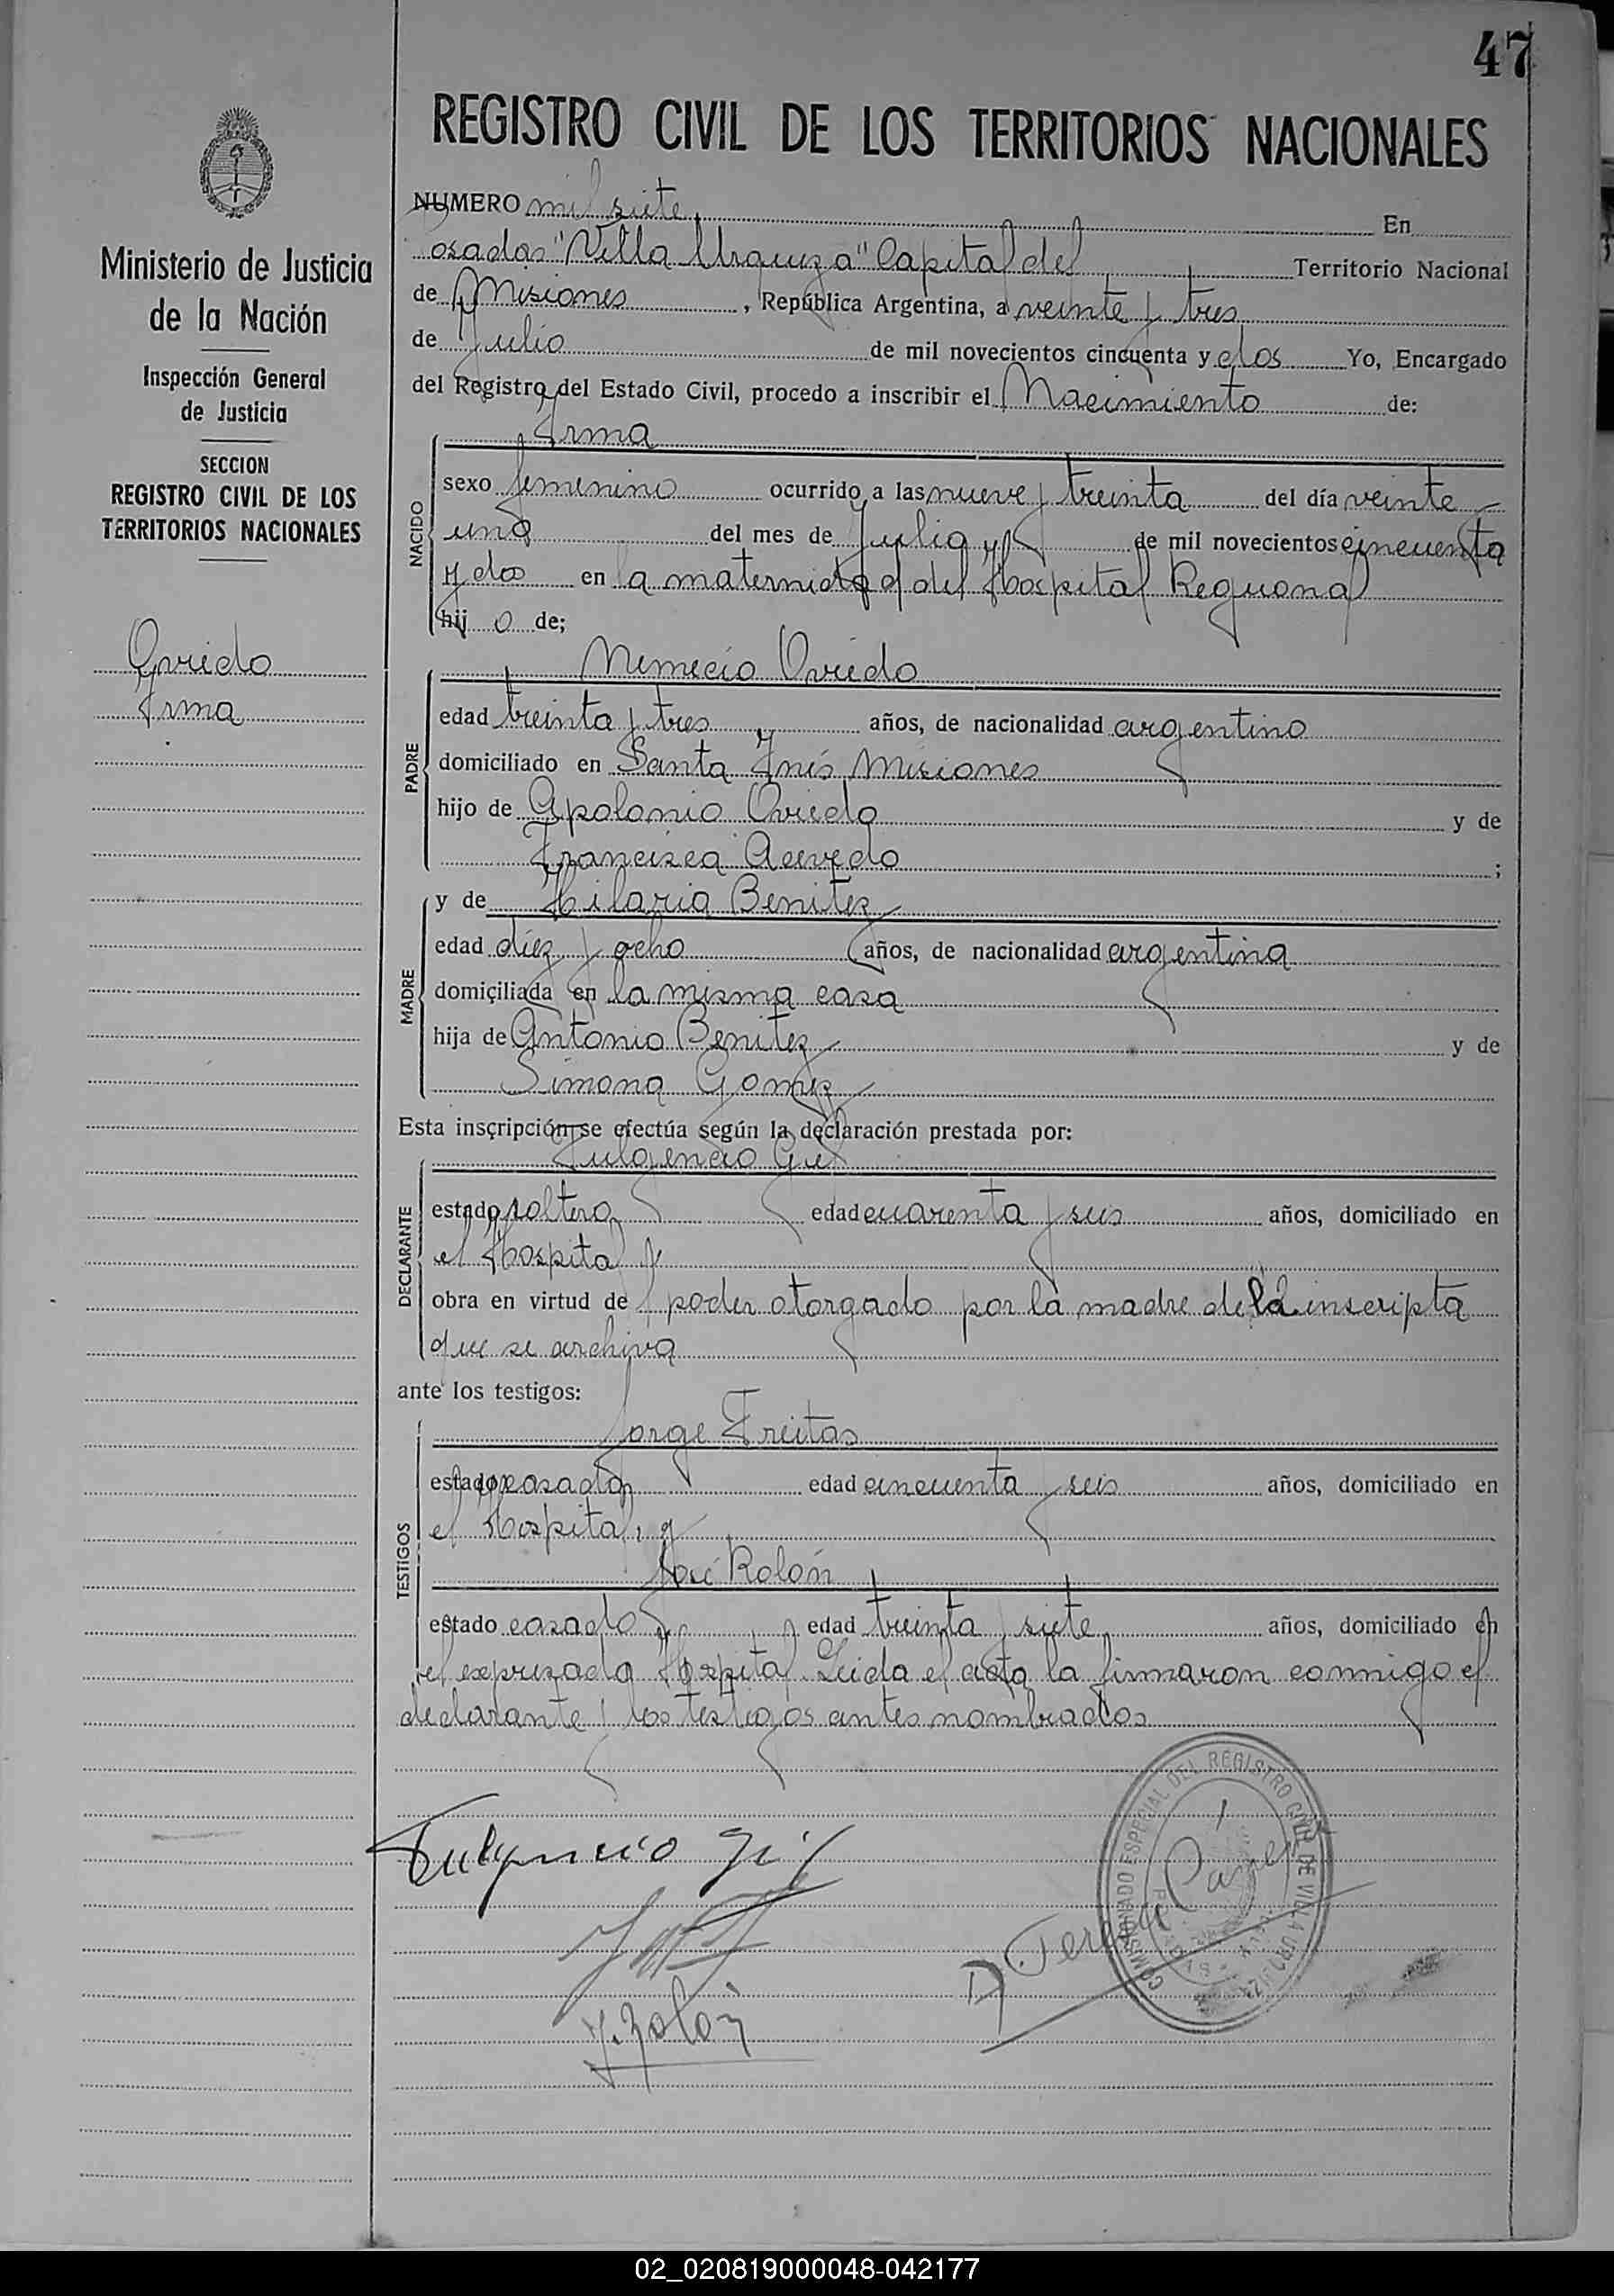 47
REGISTRO CIVIL DE LOS TERRITORIOS NACIONALES
Ministerio de Justicia
de la Nación
Inspección General
de Justicia
SECCION
REGISTRO CIVIL DE LOS
TERRITORIOS NACIONALES
Oviedo
Irma
NUMERO mil siete En
Posadas "Villa Urquiza" Capital del Territorio Nacional
de Misiones, República Argentina, a veinte y tres
de Julio de mil novecientos cincuenta y dos Yo, Encargado
del Registro del Estado Civil, procedo a inscribir el Nacimiento de:
NACIDO
Irma
sexo femenino ocurrido a las nueve y treinta del día veinte y
uno del mes de Julio de mil novecientos cincuenta
y dos en la maternidad del Hospital Regional
hij o de;
PADRE
Nemecio Oviedo
edad treinta y tres años, de nacionalidad argentino
domiciliado en Santa Inés Misiones
hijo de Apolonio Oviedo y de
Francisca Acevedo ;
MADRE
y de Hilaria Benitez
edad diez y ocho años, de nacionalidad argentina
domiciliada en la misma casa
hija de Antonio Benitez y de
Simona Gomez
Esta inscripción se efectúa según la declaración prestada por:
DECLARANTE
Fulgencio Gil
estado soltero edad cuarenta y seis años, domiciliado en
el Hospital y
obra en virtud de poder otorgado por la madre de la inscripta
que se archiva
ante los testigos:
TESTIGOS
Jorge Freitas
estado casado edad cincuenta y seis años, domiciliado en
el Hospital, y
José Rolón
estado casado edad treinta y siete años, domiciliado en
el expresado Hospital. Leida el acta la firmaron conmigo el
declarante y los testigos antes nombrados
Fulgencio Gil
J. Rolón
COMISIONADO ESPECIAL DEL REGISTRO CIVIL DE VILLA URQUIZA
02_020819000048-042177